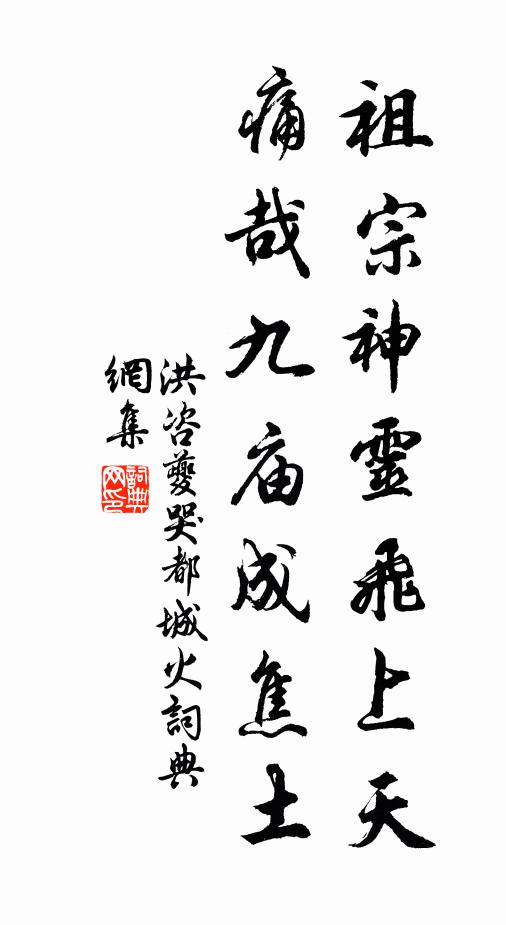 祖宗神靈飛上天
痛哉九庙成焦土
洪咨夔哭都城火詞典
網集
詞典
网印